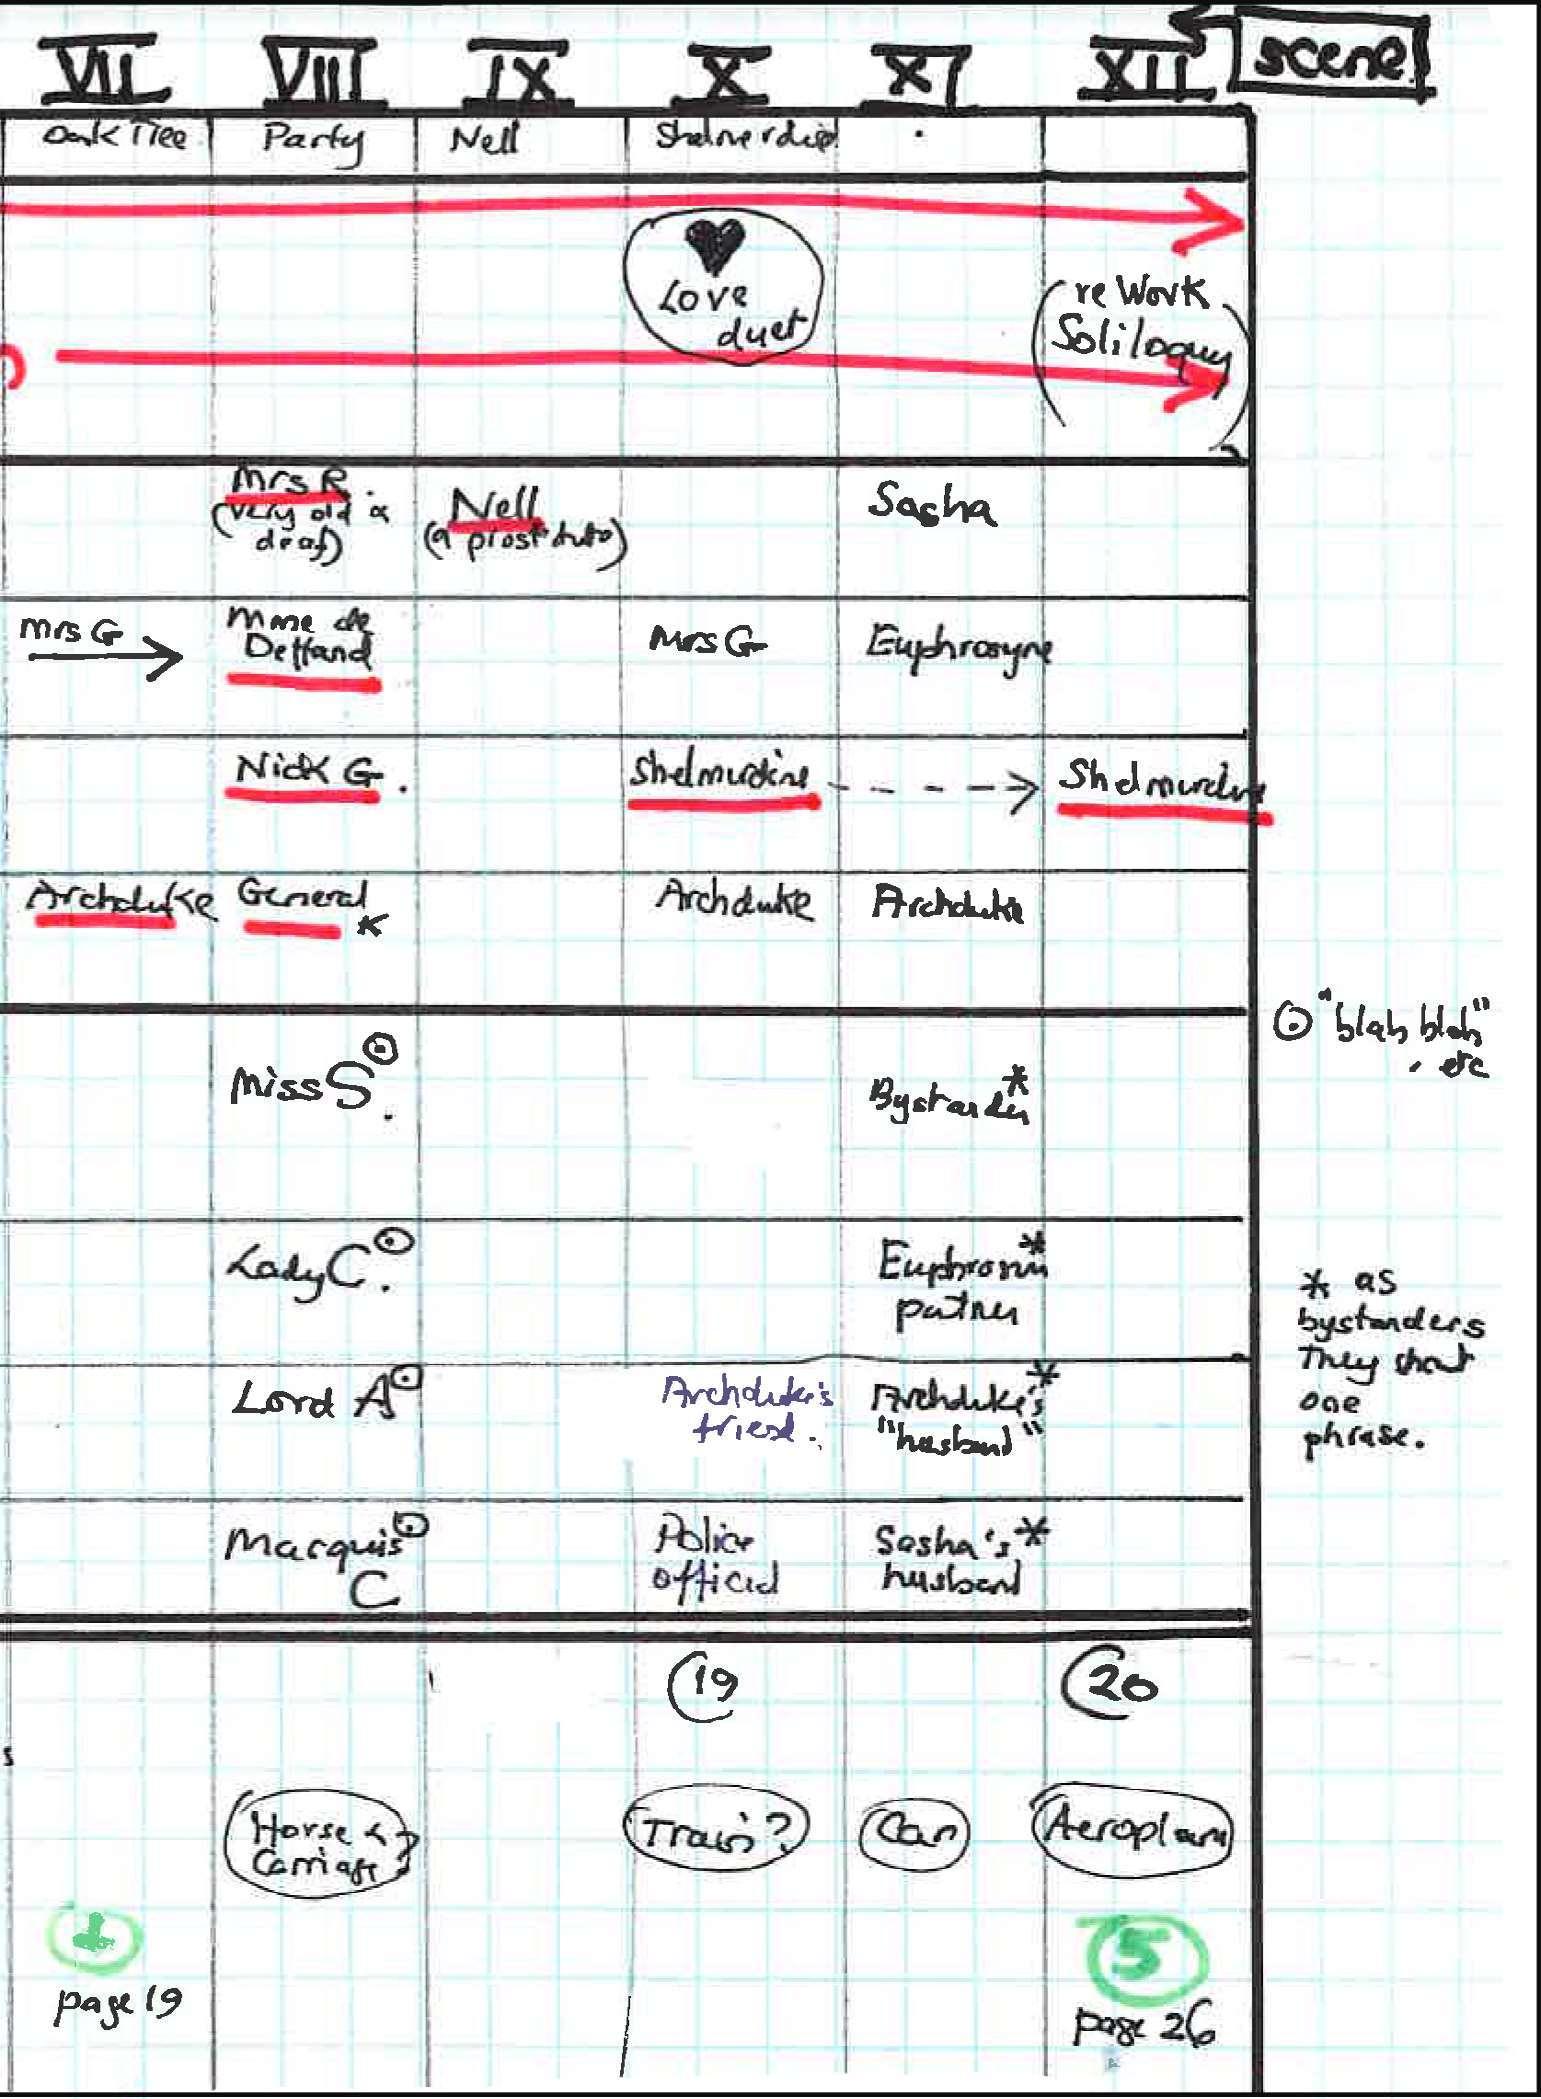 VII VIII IX X XI XII scene
Oak Tree Party Nell Shelmerdine
Love
duet
re Work
Soliloquy
Mrs R.
(very old &
deaf)
Nell
(a prostitute)
Sasha
Mrs G
Mme de
Deffand
Mrs G
Euphrosyne
Nick G.
Shelmurdine
Shelmurdine
Archduke
General *
Archduke
Archduke
"blah blah"
. etc
Miss S.
Bystander*
Lady C.
Euphrosyn*
partner
* as
bystanders
They shout
one
phrase.
Lord A
Archduke's
friend.
Archduke's*
"husband"
Marquis
C
Police
official
Sasha's*
husband
19
20
s
Horse &
Carriage
Train?
Car
Aeroplane
1
page 19
5
page 26